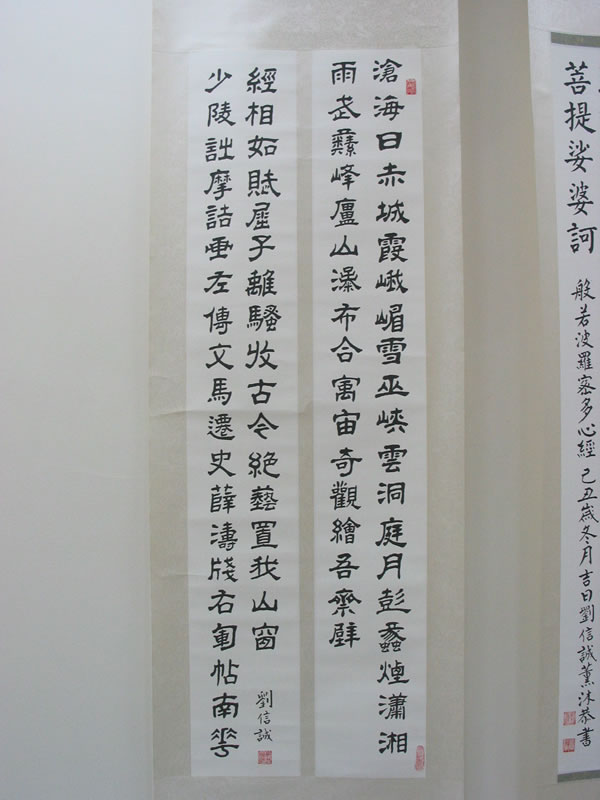 滄海日赤城霞峨嵋雪巫峽雲洞庭月彭蠡煙瀟湘
雨武彝峰廬山瀑布合寓宙奇觀繪吾齋壁
少陵詩摩詰畫左傳文馬遷史薛濤牋右軍帖南花
經相如賦屈子離騷收古今絕藝置我山窗
劉信誠
菩提娑婆訶
般若波羅密多心經 己丑歲冬月吉日劉信誠薰沐恭書